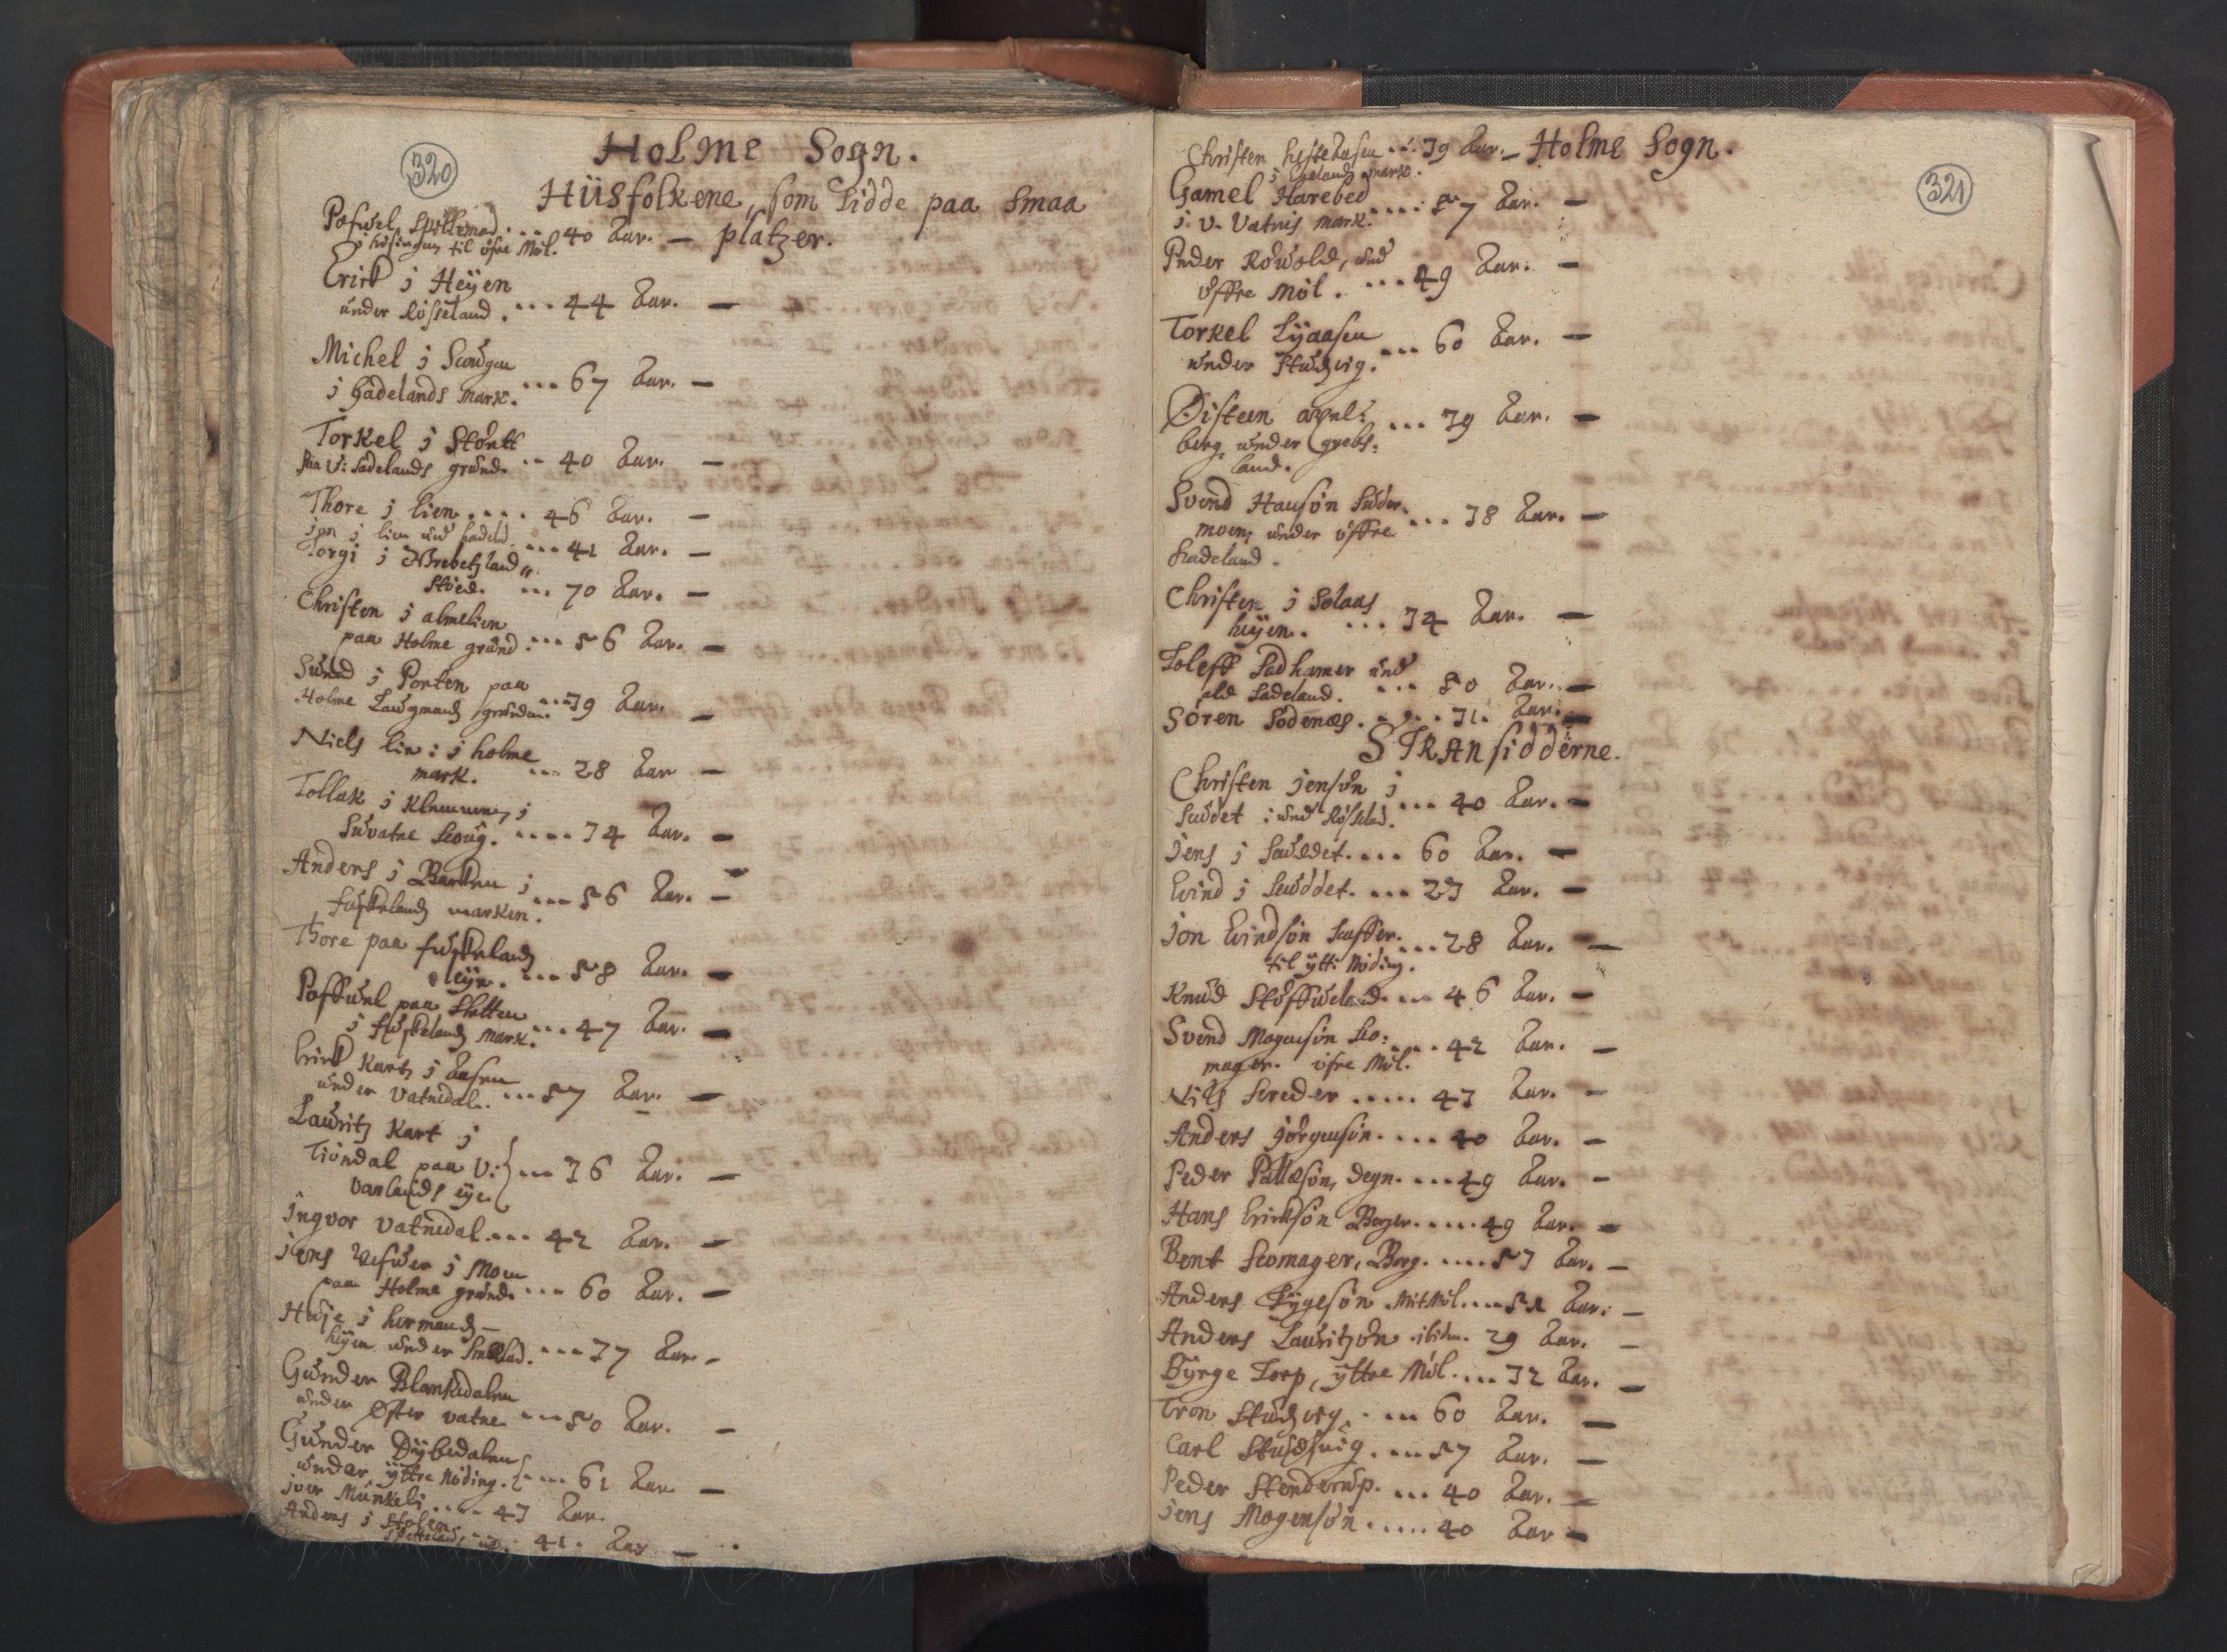 320
Holme Sogn.
Hüsfolkene, som sidde paa smaa
platzer.
Pofwel Spillemad ... 40 Aar. —
til öfre Möl.
Erick j Heÿen
under Röfseland. ... 44 Aar. —
Michel j Scowgen
j Hadelands mark. ... 67 Aar. —
Torkel j Stöett
paa V: Sadelands gründ. .. 40 Aar. —
Thore j lien .... 46 Aar. —
jon j lien und hadeld. ... 41 Aar. —
Torgi j Grebetzland
Stöed. ... 70 Aar. —
Christen j almelien
paa Holme gründ. ... 56 Aar. —
Swend j Porten paa
Holme Lawgmandz grunden. ... 39 Aar. —
Niels lie: j holme
mark. ... 28 Aar —
Tollak j Klemmen, j
Suvatne Scoug. .... 34 Aar. —
Anders j Backen j
fuskelandz marken. ... 56 Aar. —
Thore paa fuskelandz
eÿe. ... 58 Aar. —
Poffwel paa Sletten
j fuskelandz mark. ... 47 Aar. —
Erick Kartz j Aasen
under Vatnedal. ... 57 Aar. —
Lauritz Kart j
Tiöndal paa V:
Vanlands eÿe. ... 36 Aar. —
Ingvor Vatnedal. ... 42 Aar. —
jens Vefwer j Moen
paa Holme gründ. ... 60 Aar. —
Hoje j hermandz —
heÿen under ... 37 Aar. —
Gunder Blankedalen
under Öster vatne ... 50 Aar. —
Gunder Dÿbedalen
under ÿttre Nöding. ... 61 Aar —
jver Munkeli .... 43 Aar.
Anders j Stolen
... 41. Aar —
321
Christen hesteaasen ... 39 Aar. — Holme Sogn.
j mark.
Gamel Harebed
j V. Vatnis mark. .... 57 Aar. —
Peder Röwold, und
öffre Möl. ... 49 Aar. —
Torkel Lÿaasen
under Studzvig. ... 60 Aar. —
Öisteen apel:
berg, under grebs:
land. ... 39 Aar. —
Svend Hansön Sudder,
moen, under öffre
Hadeland. ... 38 Aar. —
Christen j Solaas
heÿen. ... 34 Aar. —
Toleff Sadhamer und
Sadeland. ... 50 Aar. —
Sören Södenæs. .... 31. Aar. —
STRANsidderne.
Christen jensön j
Suddet: und Röfseld. ... 40 Aar. —
Jens j Suddet. ... 60 Aar. —
Evind j Suddet. ... 23 Aar. —
Jon Evindsön Saffter.
til ÿtti Nöding. ... 28 Aar. —
Knud Stöffweland. ... 46 Aar. —
Svend Mogensön Sco:
mager. öfre Möl. ... 42 Aar. —
Niels Screder ..... 43 Aar. —
Anders jörgensön. ... 40 Aar. —
Peder Pallesön, Degn. ... 49 Aar. —
Hans Ericksön Borger. .... 49 Aar. —
Bent Scomager, Borg. .... 53 Aar. —
Anders Tÿgesön MitMöl. ... 51 Aar. —
Anders Lauritzön ibidm. 29 Aar. —
Bÿrge Torp, ÿttre Möl. ... 32 Aar. —
Tron Studzvig. ... 60 Aar. —
Carl Studsvig. ... 57 Aar. —
Peder Stenderup. ... 40 Aar. —
jens Mogensön ..... 40 Aar —